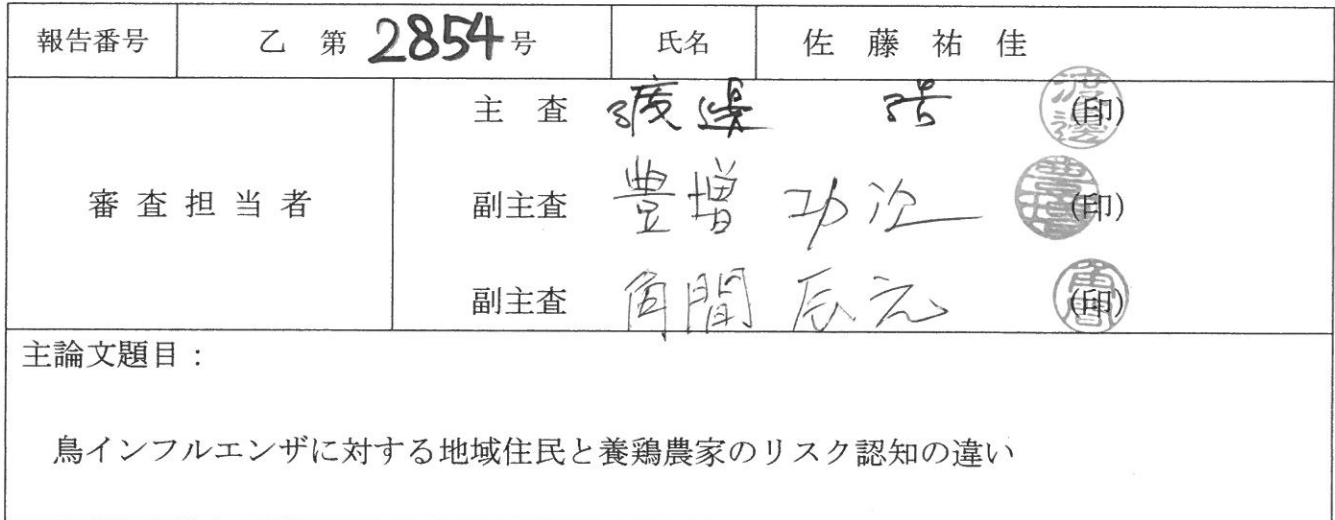 報告番号 乙 第 2854 号 氏名 佐藤祐佳
審査担当者
主査 渡邊 浩 (印)
副主査 豊増 功次 (印)
副主査 角間 辰之 (印)
主論文題目:
鳥インフルエンザに対する地域住民と養鶏農家のリスク認知の違い